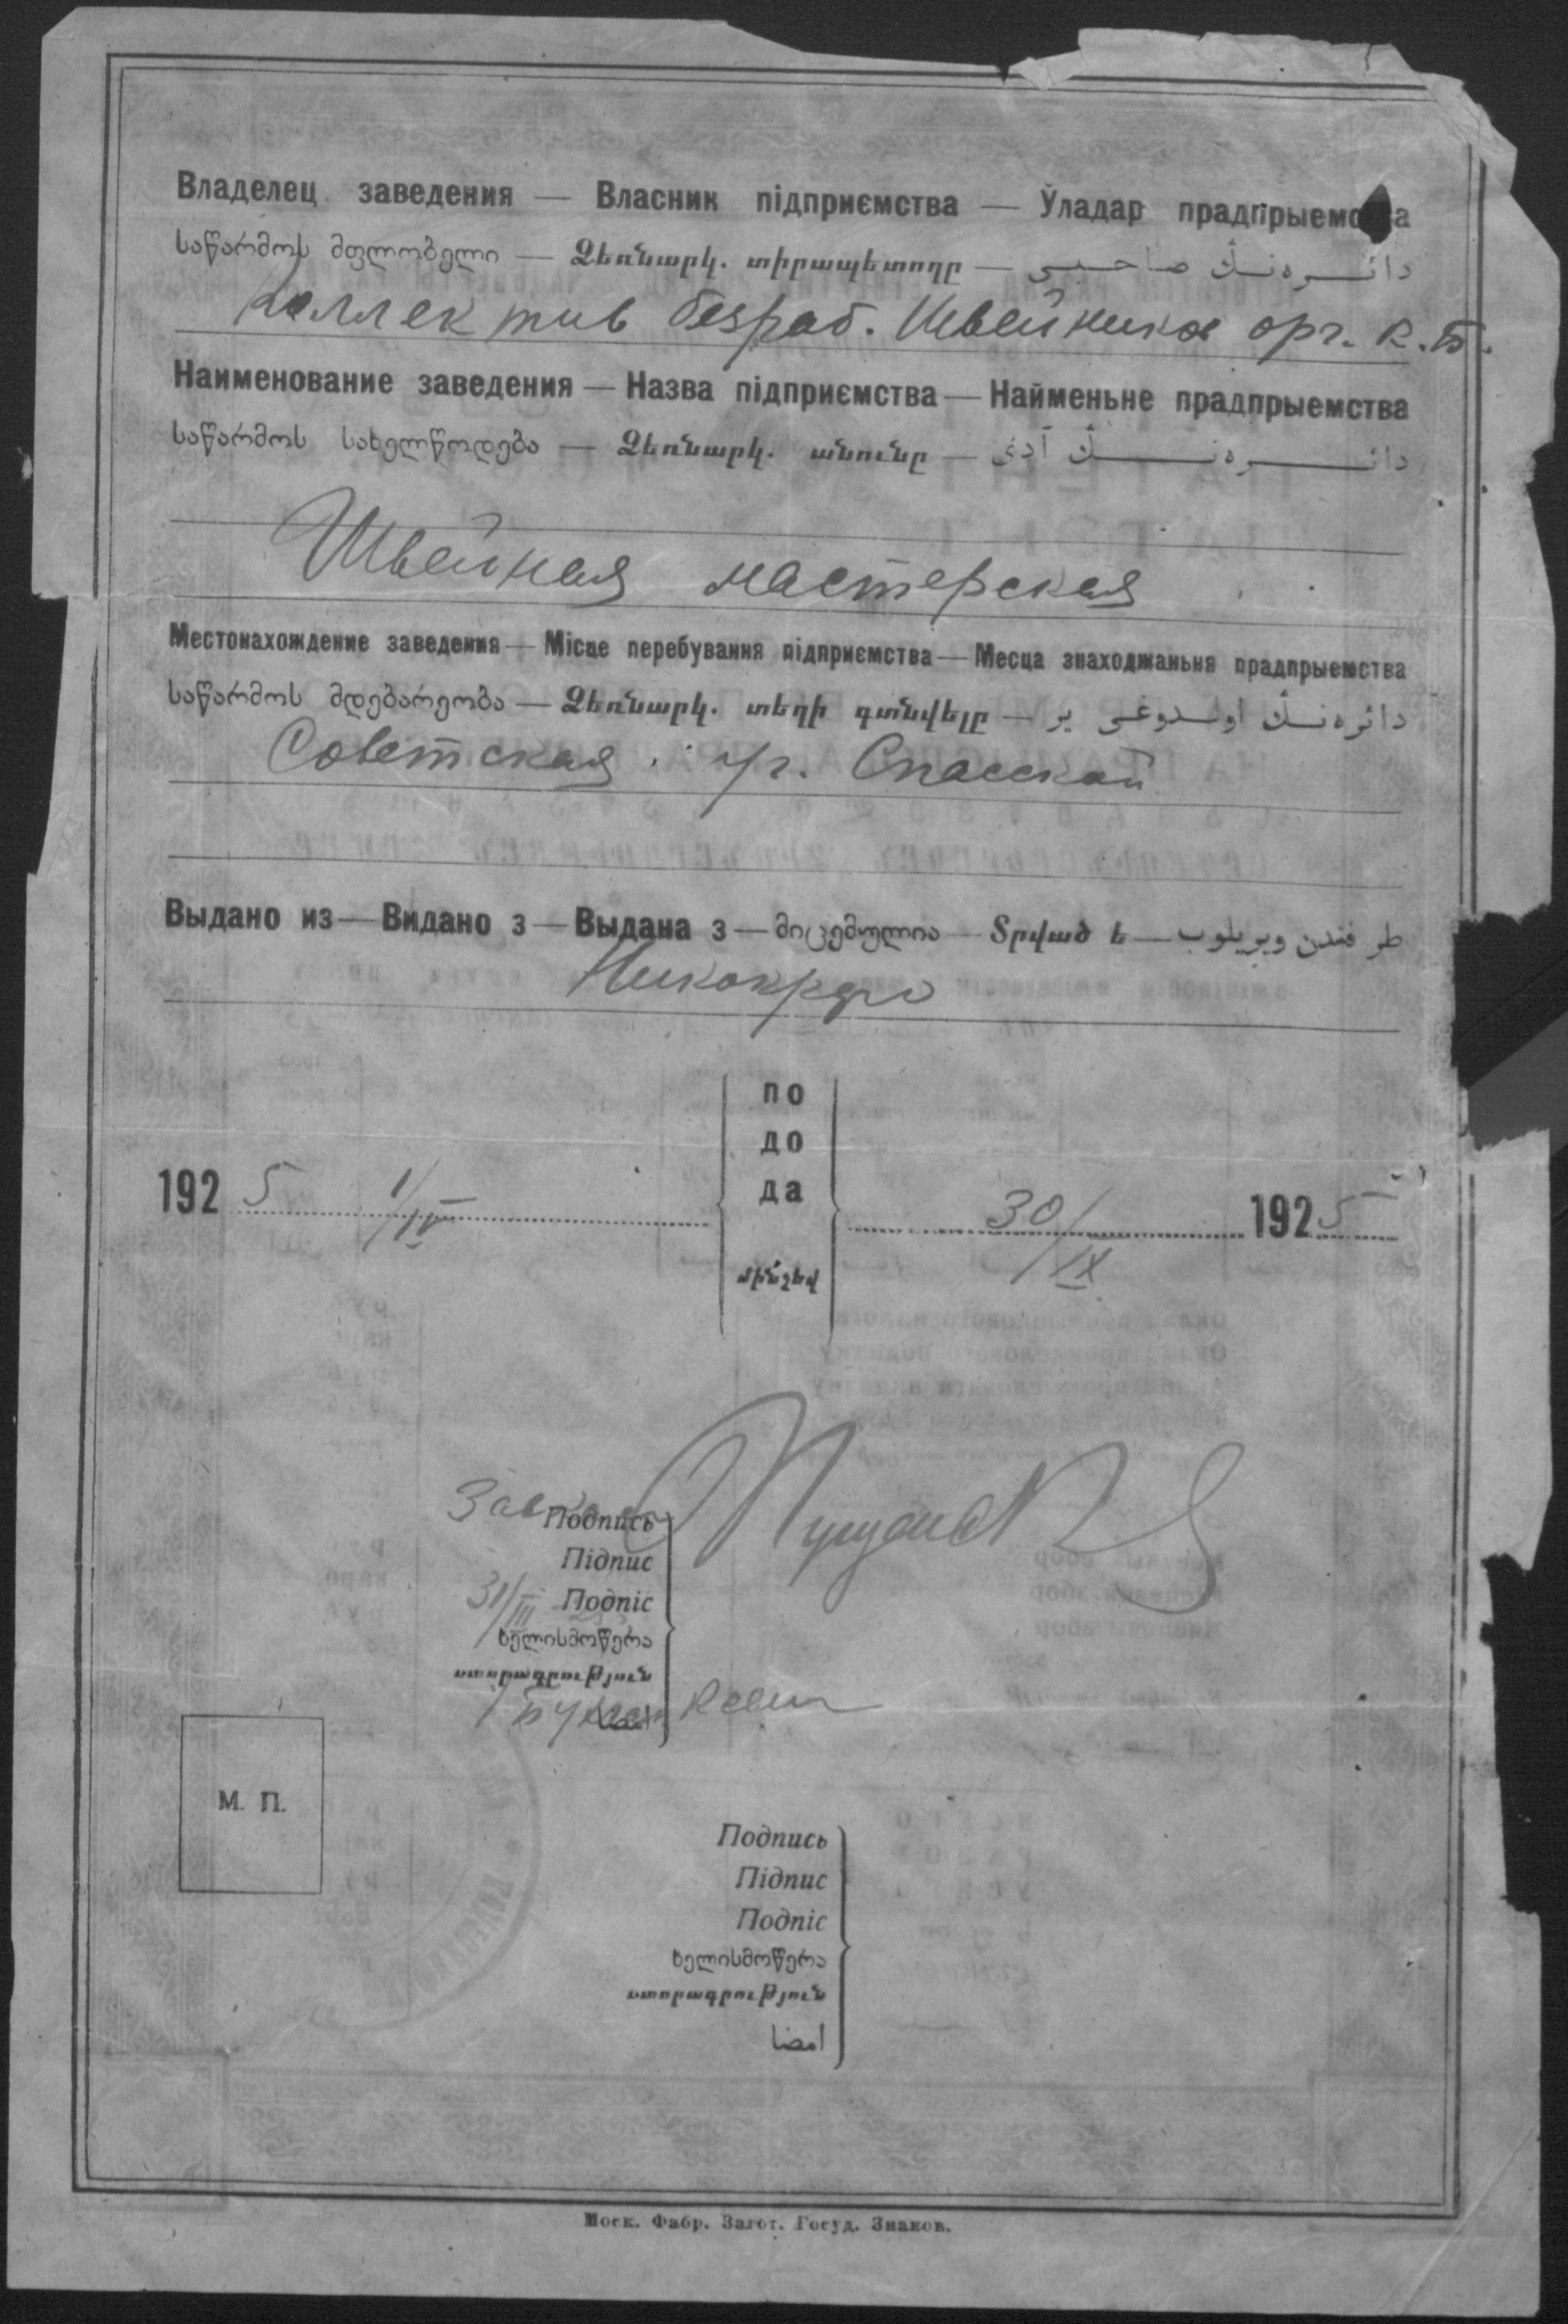 Владелец заведения — Власник підприємства — Ўладар прадпрыемства
საწარმოს მფლობელი — Ձեռնարկ. տիրապետողը — دائره‌نڭ صاحبی
Коллектив безраб. Швейников орг. К.Б.
Наименование заведения — Назва підприємства — Найменьне прадпрыемства
საწარმოს სახელწოდება — Ձեռնարկ. անունը — دائره‌نڭ آدی
Швейная мастерская
Местонахождение заведения — Місце перебування підприємства — Месца знаходжаньня прадпрыемства
საწარმოს მდებარეობა — Ձեռնարկ. տեղի գտնվելը — دائره‌نڭ اولدوغی یر
Советская уг. Спасской
Выдано из — Видано з — Выдана з — მიცემულია — Տրված է — طرفندن ویریلوب
по
до
да
1925 1/IV 30/IX 1925
մինչեվ
Подпись
Підпис
31/III Подпіс
ხელისმოწერა
ստորագրություն
امضا
М. П.
Подпись
Підпис
Подпіс
ხელისმოწერა
ստորագրություն
امضا
Моск. Фабр. Загот. Госуд. Знаков.